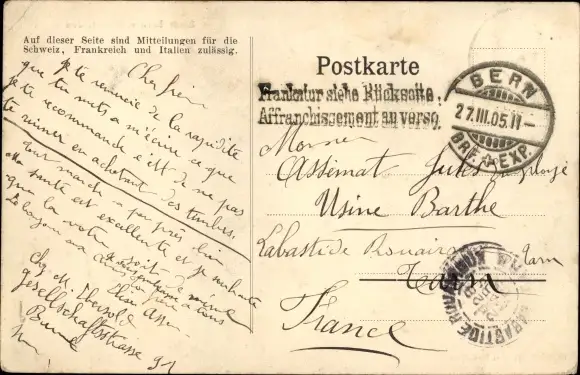 Auf dieser Seite sind Mitteilungen für die
Schweiz, Frankreich und Italien zulässig.
Postkarte
Frankatur siehe Rückseite.
Affranchissement au verso.
BERN
27.III.05.11-
BRF. EXP.
Cher frère
Je te remercie de la rapidité
que tu mets a m'écrire ce que
je te recommande c'est de ne pas
te ruiner en achetant des timbres.
Tout marche a peu près bien
Ma santé est excellente et je souhaite
que la votre soit de même
a tous
ton frère
Chez M. Ebersold
Gesellschaftsstrasse 91
Berne
Monsieur
Assémat Jules employé
Usine Barthe
Labastide Rouairoux Tarn
Tarn
France
LABASTIDE ROUAIROUX